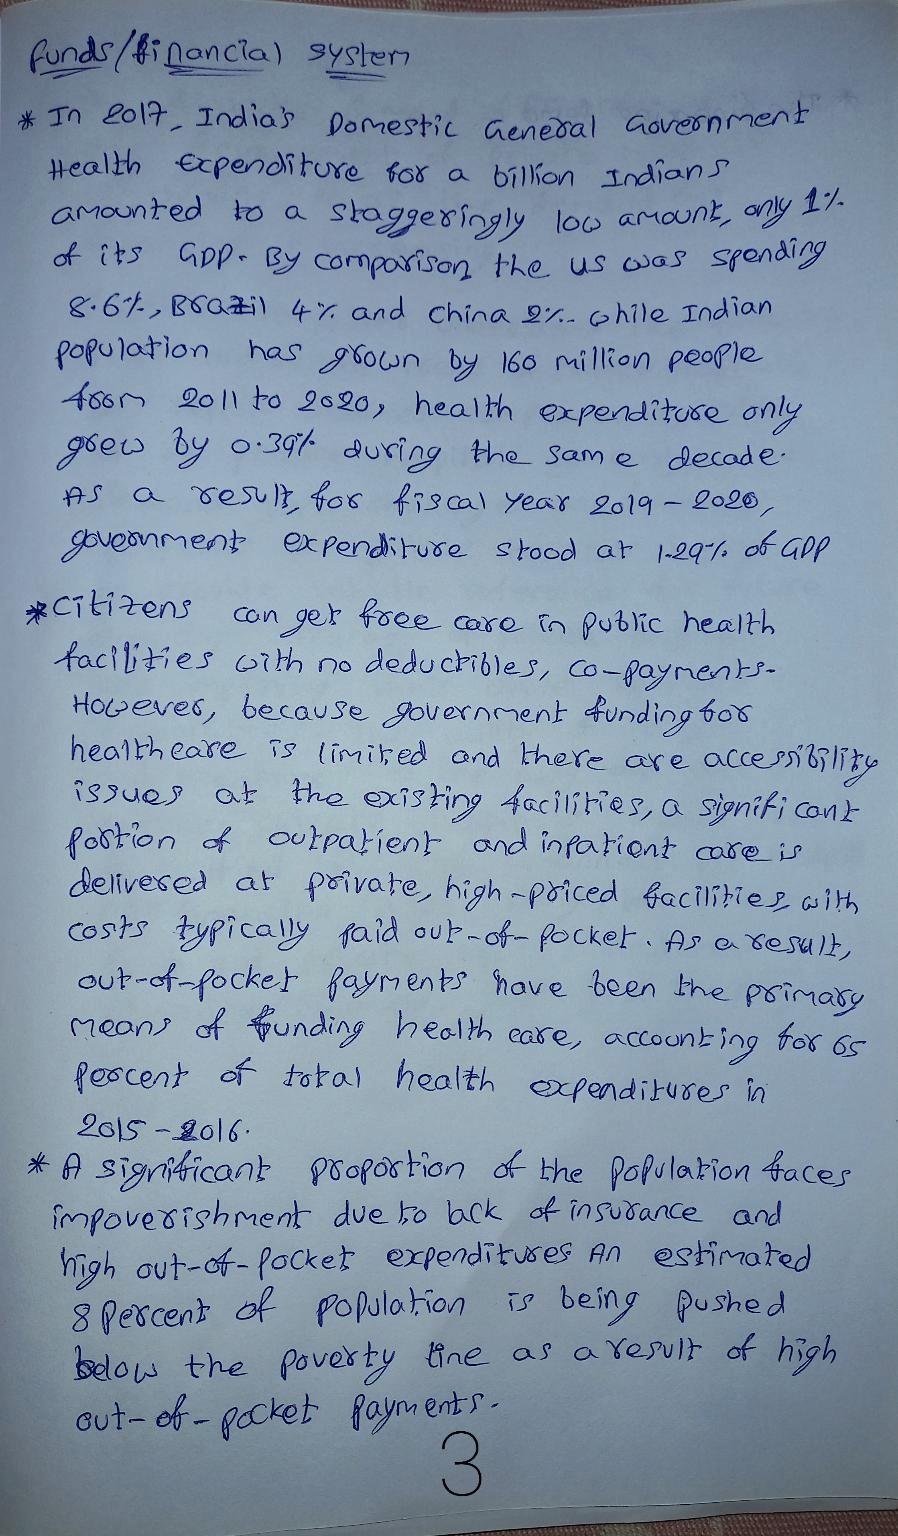 funds/financial system
* In 2017, India's Domestic General Government
Health Expenditure for a billion Indians
amounted to a staggeringly low amount, only 1%
of its GDP. By comparison the US was spending
8.6%, Brazil 4% and China 2%. while Indian
population has grown by 160 million people
from 2011 to 2020, health expenditure only
grew by 0.39% during the same decade.
As a result, for fiscal year 2019-2020,
government expenditure stood at 1.29% of GDP
* citizens can get free care in public health
facilities with no deductibles, co-payments.
However, because government funding for
healthcare is limited and there are accessibility
issues at the existing facilities, a significant
portion of outpatient and inpatient care is
delivered at private, high-priced facilities with
costs typically paid out-of-pocket. As a result,
out-of-pocket payments have been the primary
means of funding health care, accounting for 65
percent of total health expenditures in
2015-2016.
* A significant proportion of the population faces
impoverishment due to lack of insurance and
high out-of-pocket expenditures An estimated
8 Percent of population is being pushed
below the poverty line as a result of high
out-of-pocket payments.
3